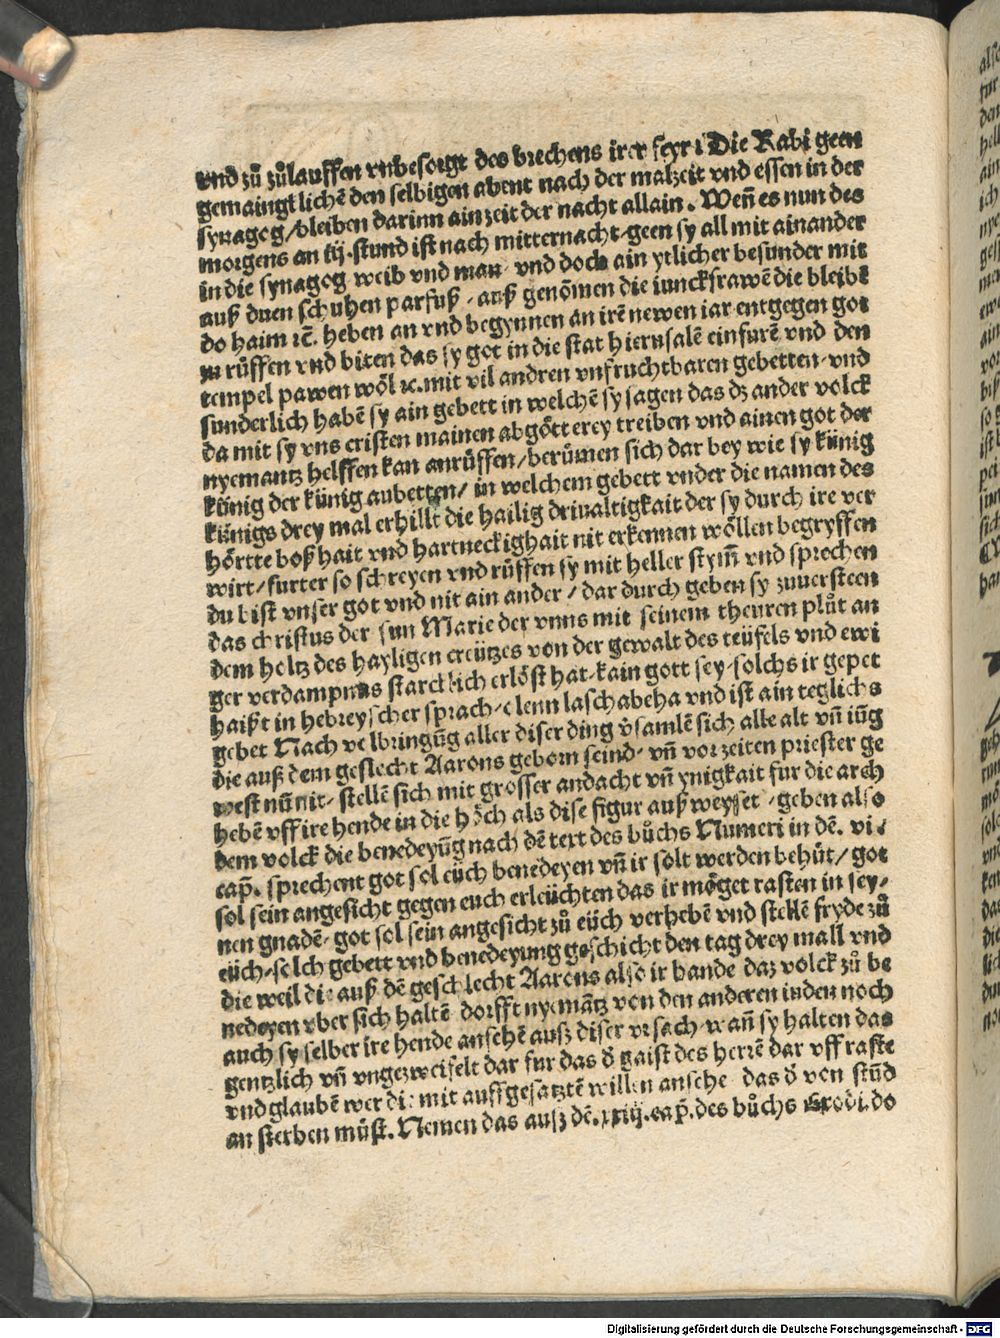 vnd zů zůlauffen vnbesorgt des brechens irer feyr: Die Rabi geen
gemaingklichē den selbigen abent nach der malzeit vnd essen in der
synagog/bleiben darinn ain zeit der nacht allain. Weñ es nun des
morgens an iij. stund ist nach mitternacht, geen sy all mit ainander
in die synagog weib vnd man, vnd doch ain ytlicher besunder mit
auß duen schuhen parfuß, auß genōmen die iunckfrawē die bleibē
do haim ꝛc̄. heben an vnd begynnen an irē newen iar entgegen got
zu růffen vnd biten das sy got in die stat hierusalē einfurē vnd den
tempel pawen wöl ꝛc. mit vil andren vnfruchtbaren gebetten, vnd
sunderlich habē sy ain gebett in welchē sy sagen das dz ander volck
da mit sy vns cristen mainen abgötterey treiben vnd ainen got der
nyemantz helffen kan anrůffen/berůmen sich dar bey wie sy künig
künig der künig anbetten/ in welchem gebett vnder die namen des
künigs drey mal erhillt die hailig driualtigkait der sy durch ire ver
hörtte boßhait vnd hartneckighait nit erkennen wöllen begryffen
wirt/furter so schreyen vnd růffen sy mit heller stym̄ vnd sprechen
du bist vnser got vnd nit ain ander/dar durch geben sy zuuersteen
das christus der sun Marie der vnns mit seinem theuren plůt an
dem holtz des hayligen creützes von der gewalt des teüfels vnd ewi
ger verdampnus starcklich erlöst hat, kain gott sey, solchs ir gepet
haißt in hebreyscher sprach, elenn laschabeha vnd ist ain teglichs
gebet Nach volbringūg aller diser ding v̄samlē sich alle alt vñ iūg
die auß dem geslecht Aarons geborn seind, vñ vor zeiten priester ge
west nū nit, stellē sich mit grosser andacht vñ ynigkait fur die arch
hebē vff ire hende in die höch als dise figur auß weyset, geben also
dem volck die benedeyūg nach dē text des bůchs Numeri in dē. vi.
cap̄. sprechent got sol eüch benedeyen vñ ir solt werden behůt/ got
sol sein angesicht gegen euch erleüchten das ir möget rasten in sey,
nen gnadē, got sol sein angesicht zů eüch verhebē vnd stellē fryde zů
eüch, solch gebett vnd benedeyung geschicht den tag drey mall vnd
die weil die auß dē geschlecht Aarons also ir hande daz volck zů be
nedeyen vber sich haltē dorfft nyemātz von den anderen iuden noch
auch sy selber ire hende ansehē ausz diser vrsach, wañ sy halten das
gentzlich vñ vngezweifelt dar fur das d̄ gaist des herrē dar vff raste
vnd glaubē wer die mit auffgesatztē willen ansehe das d̄ von stūd
an sterben můst. Nemen das ausz dē. xxiij. cap̄. des bůchs Exodi. do
Digitalisierung gefördert durch die Deutsche Forschungsgemeinschaft - DFG